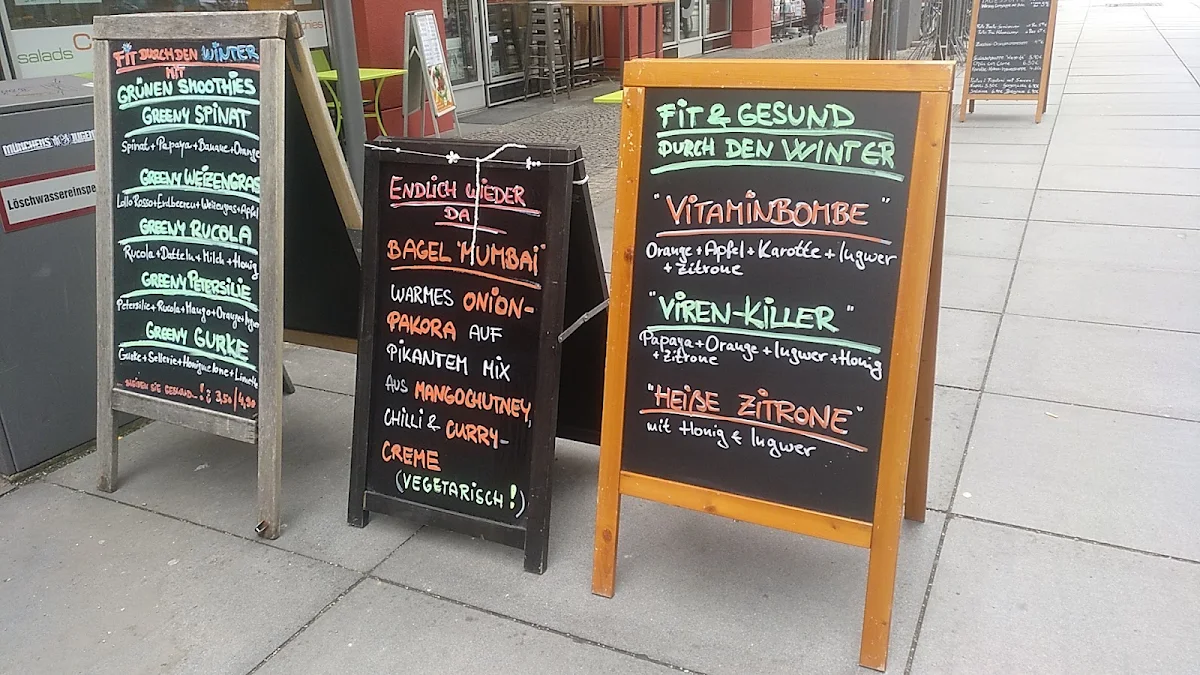 FIT DURCH DEN WINTER
MIT
GRÜNEN SMOOTHIES
GREENY SPINAT
Spinat + Papaya + Banane + Orange
GREENY WEIZENGRAS
Lollo Rosso + Erdbeeren + Weizengras + Apfel
GREENY RUCOLA
Rucola + Datteln + Milch + Honig
GREENY PETERSILIE
Petersilie + Rucola + Mango + Orange + Ingwer
GREENY GURKE
Gurke + Sellerie + Honigmelone + Limette
... BLEIBEN SIE GESUND...! 3,50 / 4,90
ENDLICH WIEDER
DA
BAGEL "MUMBAI"
WARMES ONION-
PAKORA AUF
PIKANTEM MIX
AUS MANGOCHUTNEY,
CHILLI & CURRY-
CREME
(VEGETARISCH!)
FIT & GESUND
DURCH DEN WINTER
"VITAMINBOMBE"
Orange + Apfel + Karotte + Ingwer
+ Zitrone
"VIREN-KILLER"
Papaya + Orange + Ingwer + Honig
+ Zitrone
"HEIßE ZITRONE"
mit Honig & Ingwer
salads
Löschwassereinspe